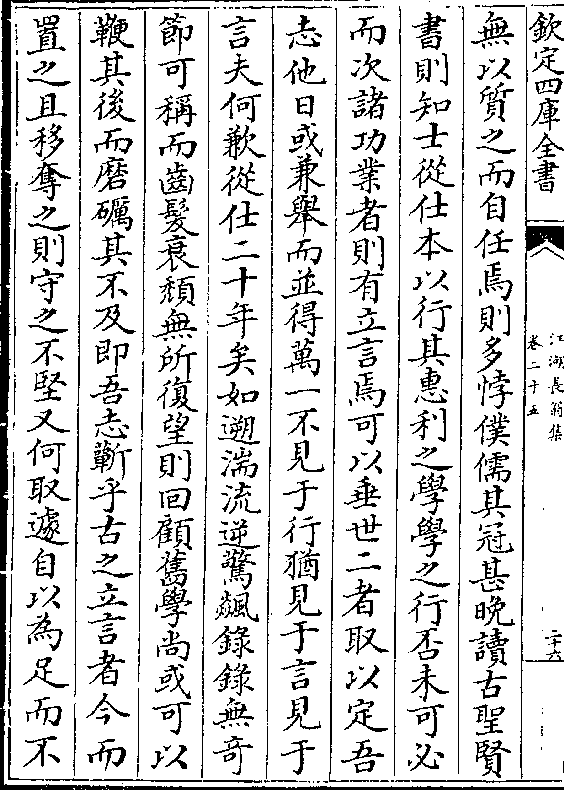 欽定四庫全書
江湖長翁集
卷二十五
二十六
無以質之而自任焉則多悖僕儒其冠甚晚讀古聖賢
書則知士從仕本以行其惠利之學學之行否未可必
而次諸功業者則有立言焉可以垂世二者取以定吾
志他日或兼舉而並得萬一不見于行猶見于言見于
言夫何歉從仕二十年矣如遡湍流逆驚飇錄錄無竒
節可稱而齒髮衰頹無所復望則回顧舊學尚或可以
鞭其後而磨礪其不及即吾志蘄乎古之立言者今而
置之且移奪之則守之不堅又何取遽自以為足而不